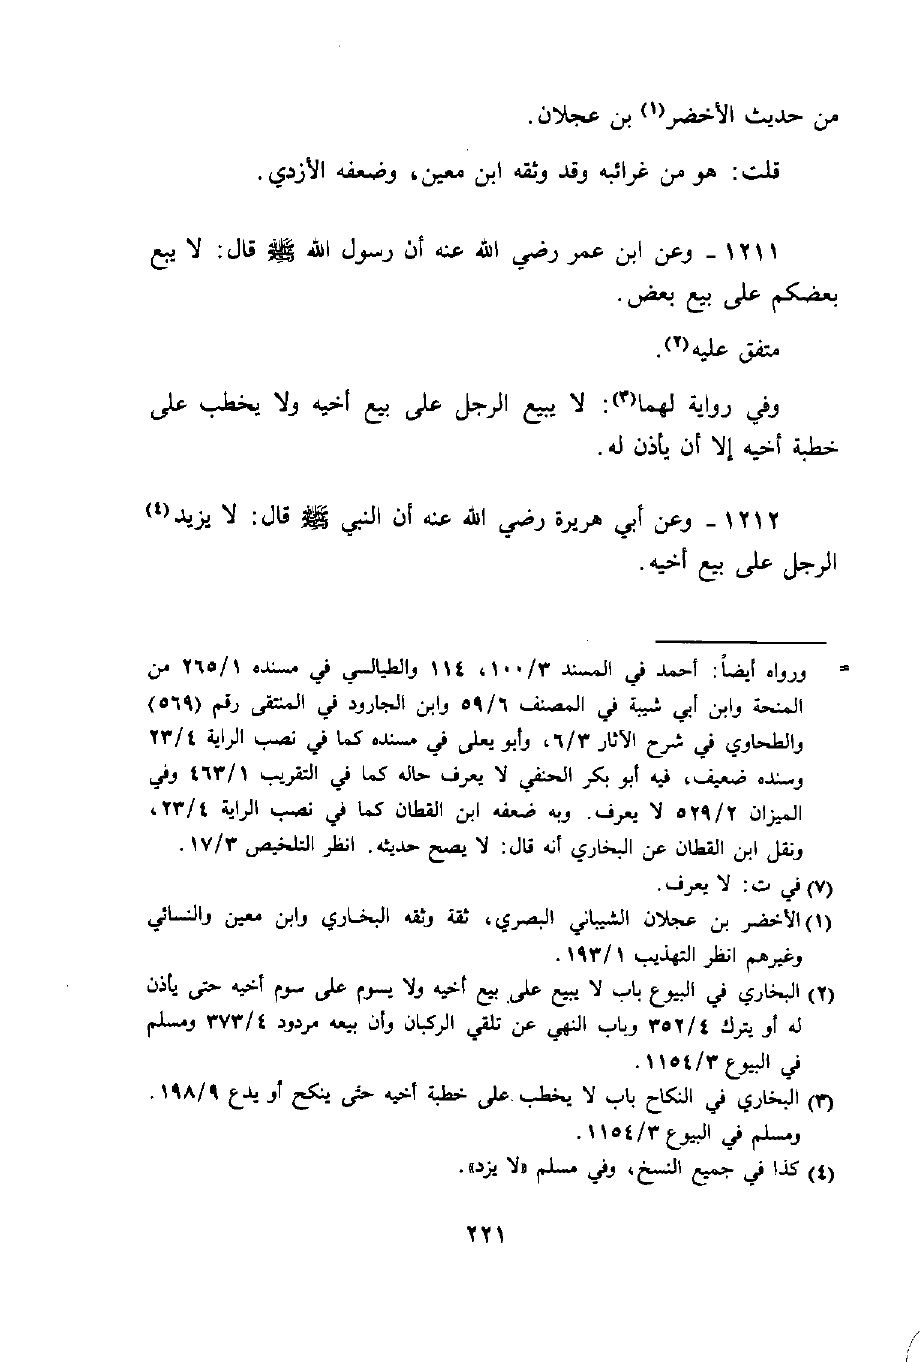 من حديث الأخضر(١) بن عجلان.
قلت: هو من غرائبه وقد وثقه ابن معين، وضعفه الأزدي.
١٢١١ - وعن ابن عمر رضي الله عنه أن رسول الله ﷺ قال: لا يبع
بعضكم على بيع بعض.
متفق عليه(٢).
وفي رواية لهما(٣): لا يبيع الرجل على بيع أخيه ولا يخطب على
خطبة أخيه إلا أن يأذن له.
١٢١٢ - وعن أبي هريرة رضي الله عنه أن النبي ﷺ قال: لا يزيد(٤)
الرجل على بيع أخيه.
= ورواه أيضاً: أحمد في المسند ١٠٠/٣، ١١٤ والطيالسي في مسنده ٢٦٥/١ من
المنحة وابن أبي شيبة في المصنف ٥٩/٦ وابن الجارود في المنتقى رقم (٥٦٩)
والطحاوي في شرح الآثار ٦/٣، وأبو يعلى في مسنده كما في نصب الراية ٢٣/٤
وسنده ضعيف، فيه أبو بكر الحنفي لا يعرف حاله كما في التقريب ٤٦٣/١ وفي
الميزان ٥٢٩/٢ لا يعرف. وبه ضعفه ابن القطان كما في نصب الراية ٢٣/٤،
ونقل ابن القطان عن البخاري أنه قال: لا يصح حديثه. انظر التلخيص ١٧/٣.
(٧) في ت: لا يعرف.
(١) الأخضر بن عجلان الشيباني البصري، ثقة وثقه البخاري وابن معين والنسائي
وغيرهم انظر التهذيب ١٩٣/١.
(٢) البخاري في البيوع باب لا يبيع على بيع أخيه ولا يسوم على سوم أخيه حتى يأذن
له أو يترك ٣٥٢/٤ وباب النهي عن تلقي الركبان وأن بيعه مردود ٣٧٣/٤ ومسلم
في البيوع ١١٥٤/٣.
(٣) البخاري في النكاح باب لا يخطب على خطبة أخيه حتى ينكح أو يدع ١٩٨/٩.
ومسلم في البيوع ١١٥٤/٣.
(٤) كذا في جميع النسخ، وفي مسلم «لا يزد».
٢٢١